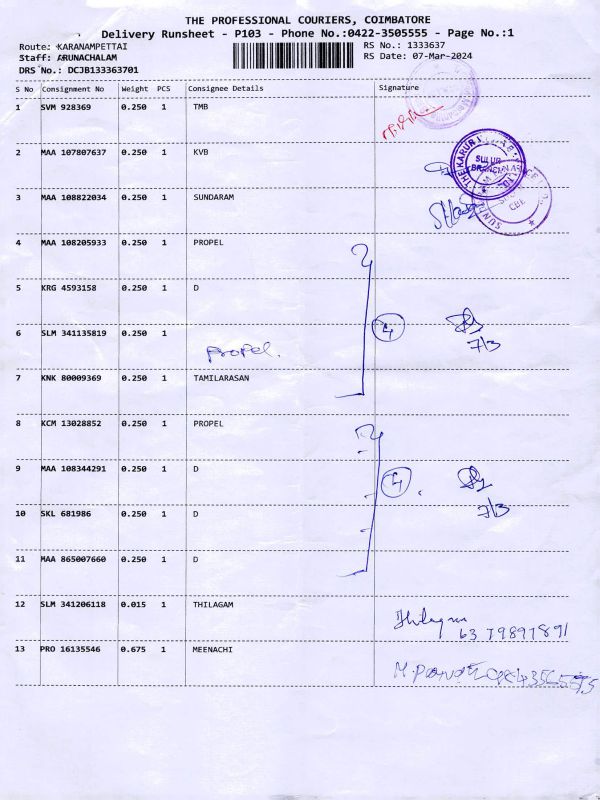 THE PROFESSIONAL COURIERS, COIMBATORE
Delivery Runsheet - P103 - Phone No.:0422-3505555 - Page No.:1
Route: KARANAMPETTAI
RS No.: 1333637
Staff: ARUNACHALAM
RS Date: 07-Mar-2024
DRS No.: DCJB133363701
S No Consignment No Weight PCS Consignee Details Signature
1 SVM 928369 0.250 1 TMB
2 MAA 107807637 0.250 1 KVB
THE KARUR
SULUR
BRANCH
3 MAA 108822034 0.250 1 SUNDARAM
CBE
4 MAA 108205933 0.250 1 PROPEL
5 KRG 4593158 0.250 1 D
6 SLM 341135819 0.250 1
4
7/3
propel.
7 KNK 80009369 0.250 1 TAMILARASAN
8 KCM 13028852 0.250 1 PROPEL
9 MAA 108344291 0.250 1 D
4
10 SKL 681986 0.250 1 D
7/3
11 MAA 865007660 0.250 1 D
12 SLM 341206118 0.015 1 THILAGAM
Thilagam
6379897891
13 PRO 16135546 0.675 1 MEENACHI